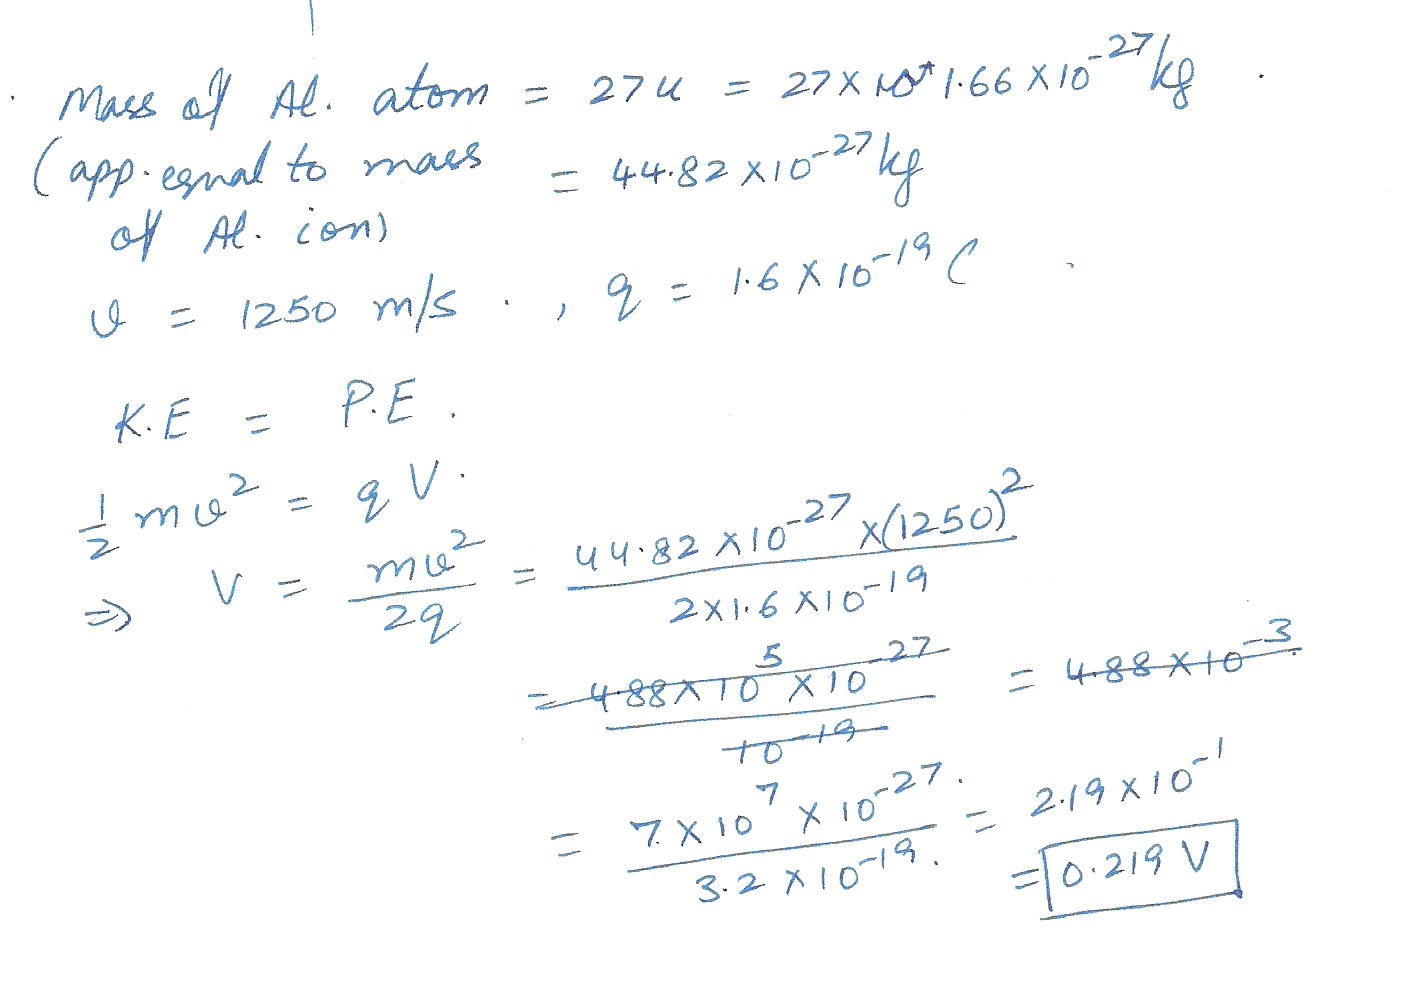 Mass of Al. atom = 27u = 27 × 1.66 × 10⁻²⁷ kg
(app. equal to mass = 44.82 × 10⁻²⁷ kg
of Al. ion)
v = 1250 m/s . , q = 1.6 × 10⁻¹⁹ C
K.E = P.E .
½ mv² = qV .
⇒ V = mv²/2q = 44.82 × 10⁻²⁷ × (1250)² / 2×1.6 × 10⁻¹⁹
= 4.88 × 10⁵ × 10⁻²⁷ / 10⁻¹⁹ = 4.88 × 10⁻³
= 7. × 10⁷ × 10⁻²⁷ / 3.2 × 10⁻¹⁹ . = 2.19 × 10⁻¹
= 0.219 V